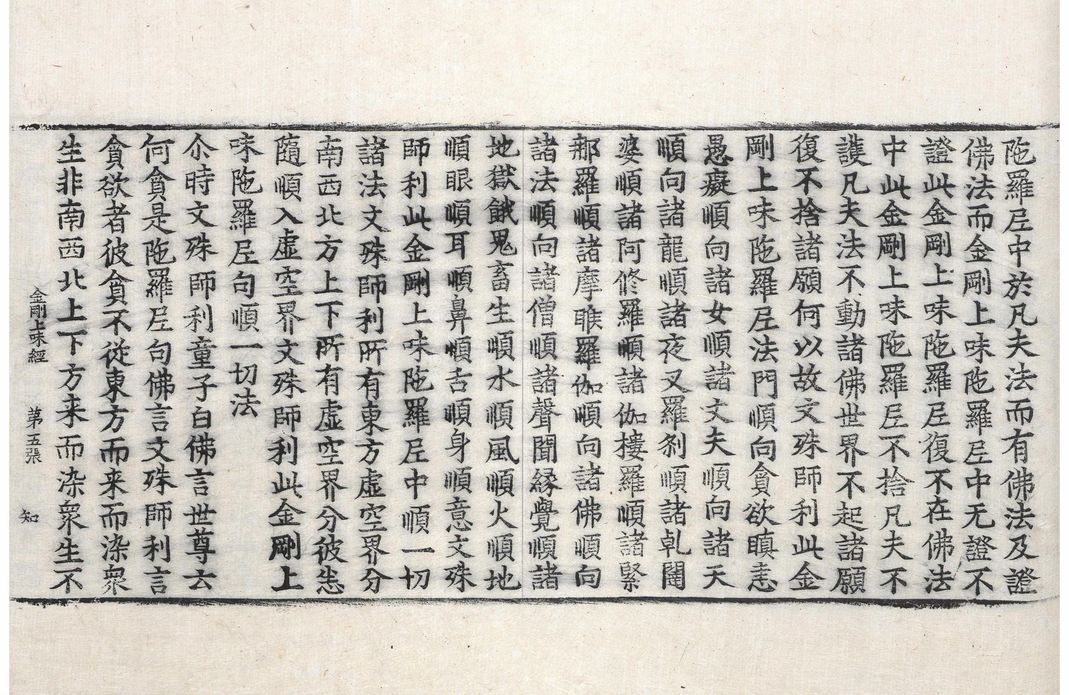 陁羅𡰱中於凡夫法而有佛法及證
佛法而金剛上味陁羅𡰱中无證不
證此金剛上味陁羅𡰱復不在佛法
中此金剛上味陁羅𡰱不捨凡夫不
護凡夫法不動諸佛世界不起諸願
復不捨諸願何以故文殊師利此金
剛上味陁羅𡰱法門順向貪欲瞋恚
愚癡順向諸女順諸丈夫順向諸天
順向諸龍順諸夜叉羅刹順諸乹闥
婆順諸阿修羅順諸伽樓羅順諸緊
那羅順諸摩睺羅伽順向諸佛順向
諸法順向諸僧順諸聲聞縁覺順諸
地獄餓鬼畜生順水順風順火順地
順眼順耳順鼻順舌順身順意文殊
師利此金剛上味陁羅𡰱中順一切
諸法文殊師利所有東方虛空界分
南西北方上下所有虛空界分彼悉
隨順入虛空界文殊師利此金剛上
味陁羅𡰱句順一切法
尒時文殊師利童子白佛言世尊云
何貪是陁羅𡰱句佛言文殊師利言
貪欲者彼貪不從東方而来而染衆
生非南西北上下方来而染衆生不
金剛上味經 第五張 知